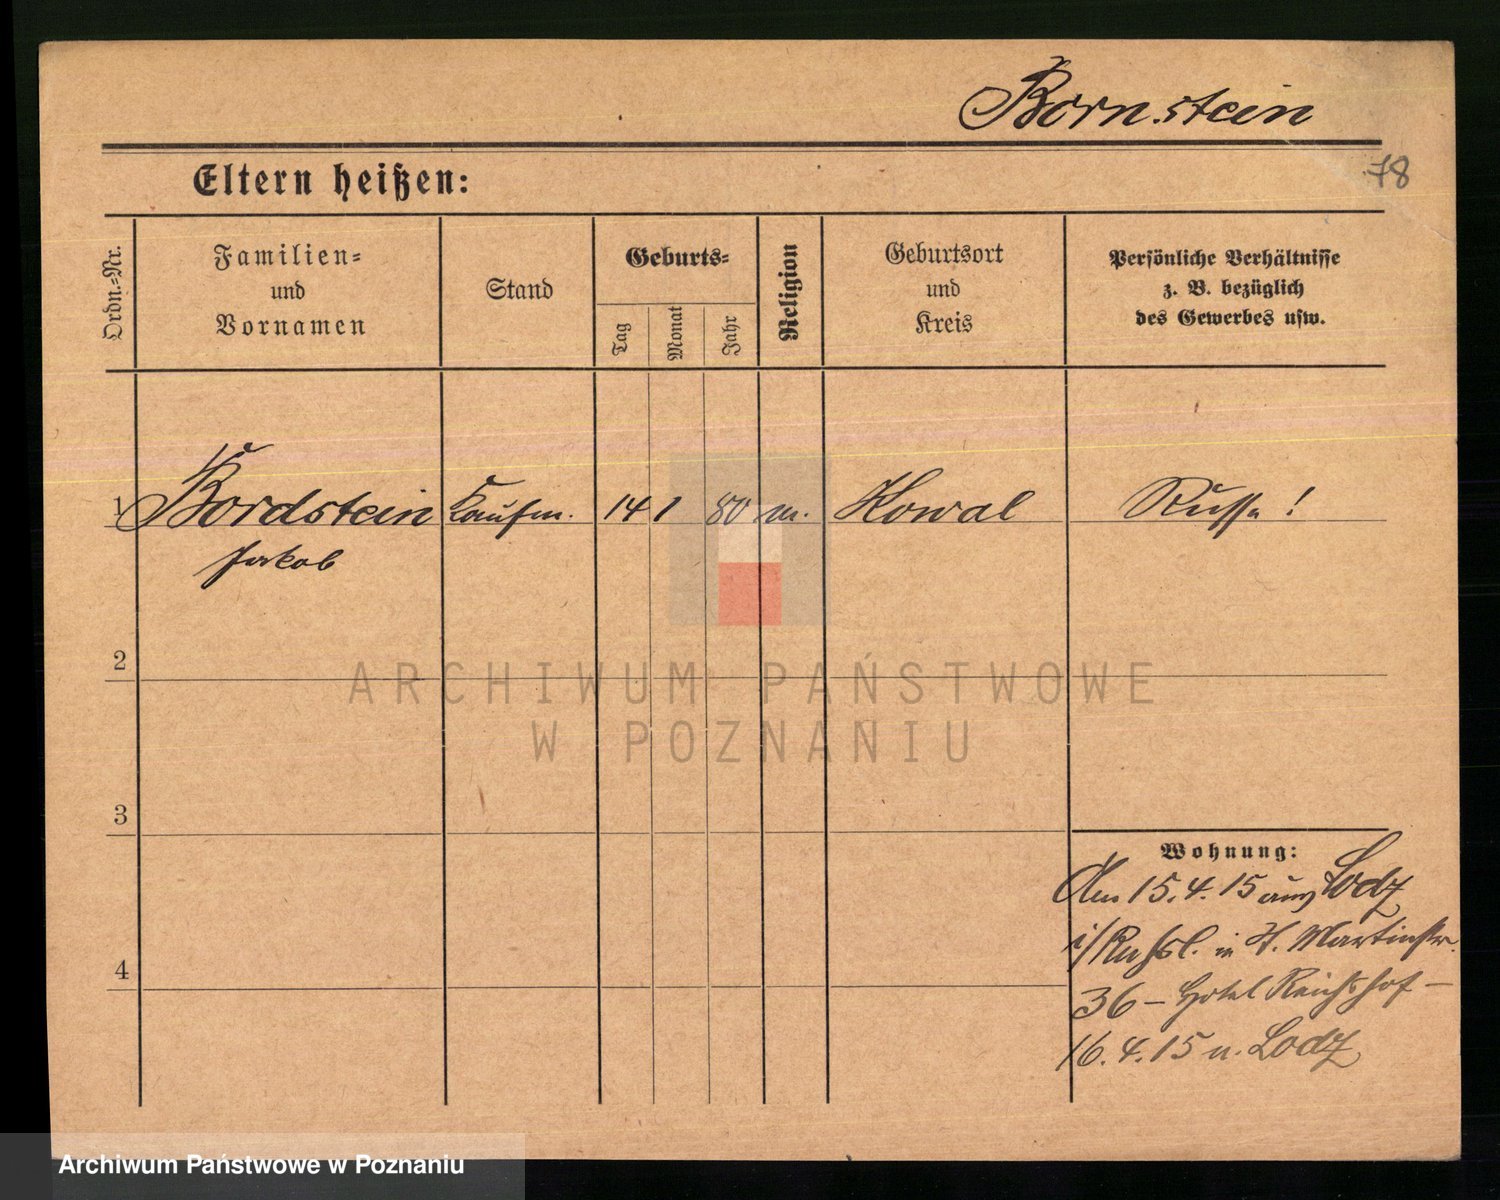 Bornstein
78
Eltern heißen:
Ordn.-Nr.
Familien-
und
Vornamen
Stand
Geburts-
Tag
Monat
Jahr
Religion
Geburtsort
und
Kreis
Persönliche Verhältnisse
z. B. bezüglich
des Gewerbes usw.
1 Bordstein Kaufm. 14 1 80 m. Kowal Russe!
Jakob
2
ARCHIWUM PAŃSTWOWE
W POZNANIU
3
Wohnung:
Am 15.4.15 aus Lodz
i/Russl. in St. Martinstr.
4
36 – Hotel Reichshof –
16.4.15 n. Lodz
Archiwum Państwowe w Poznaniu